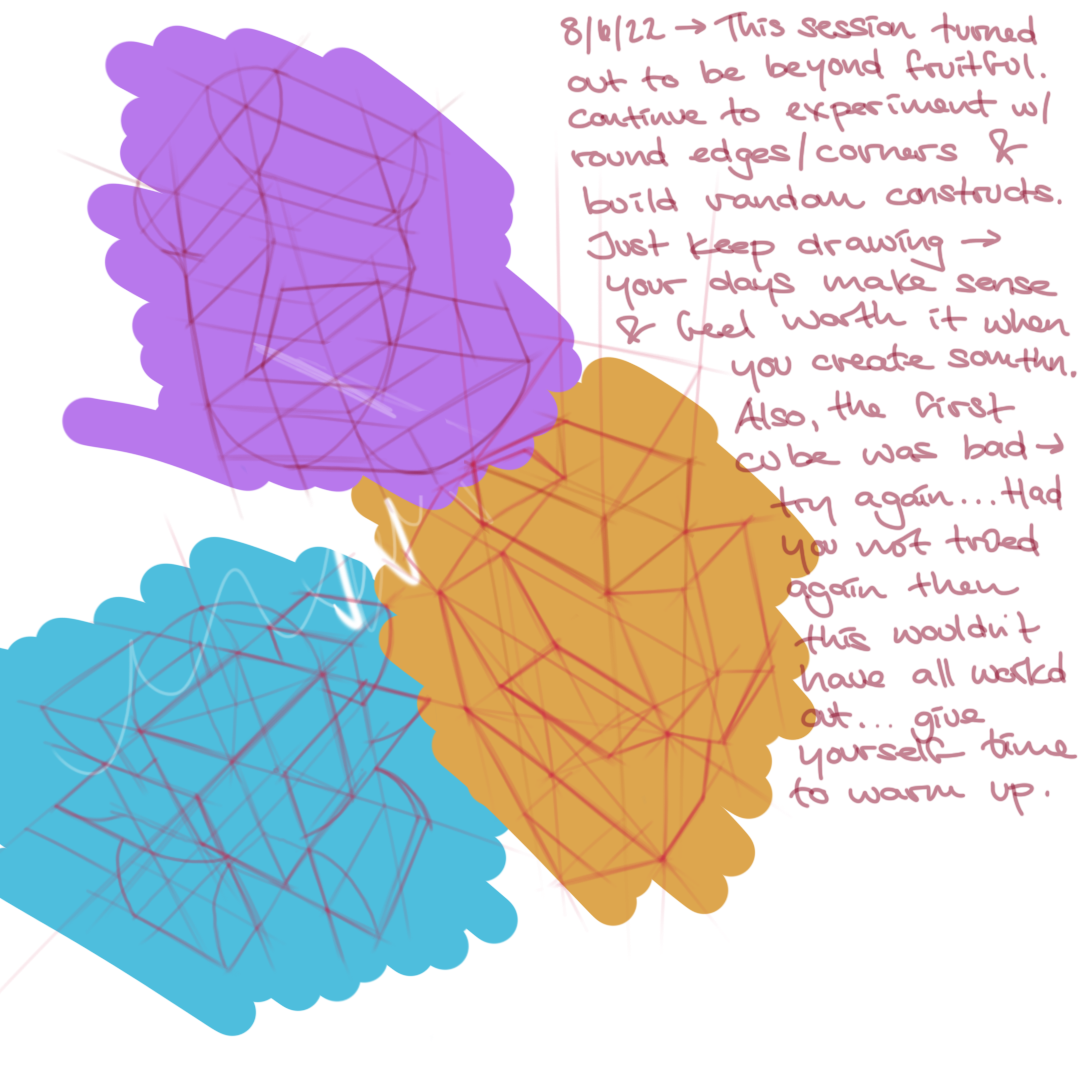 8/6/22 → This session turned
out to be beyond fruitful.
continue to experiment w/
round edges/corners &
build random constructs.
Just keep drawing →
your days make sense
& feel worth it when
you create somthn.
Also, the first
cube was bad →
try again...Had
you not tried
again then
this wouldn't
have all workd
out... give
yourself time
to warm up.